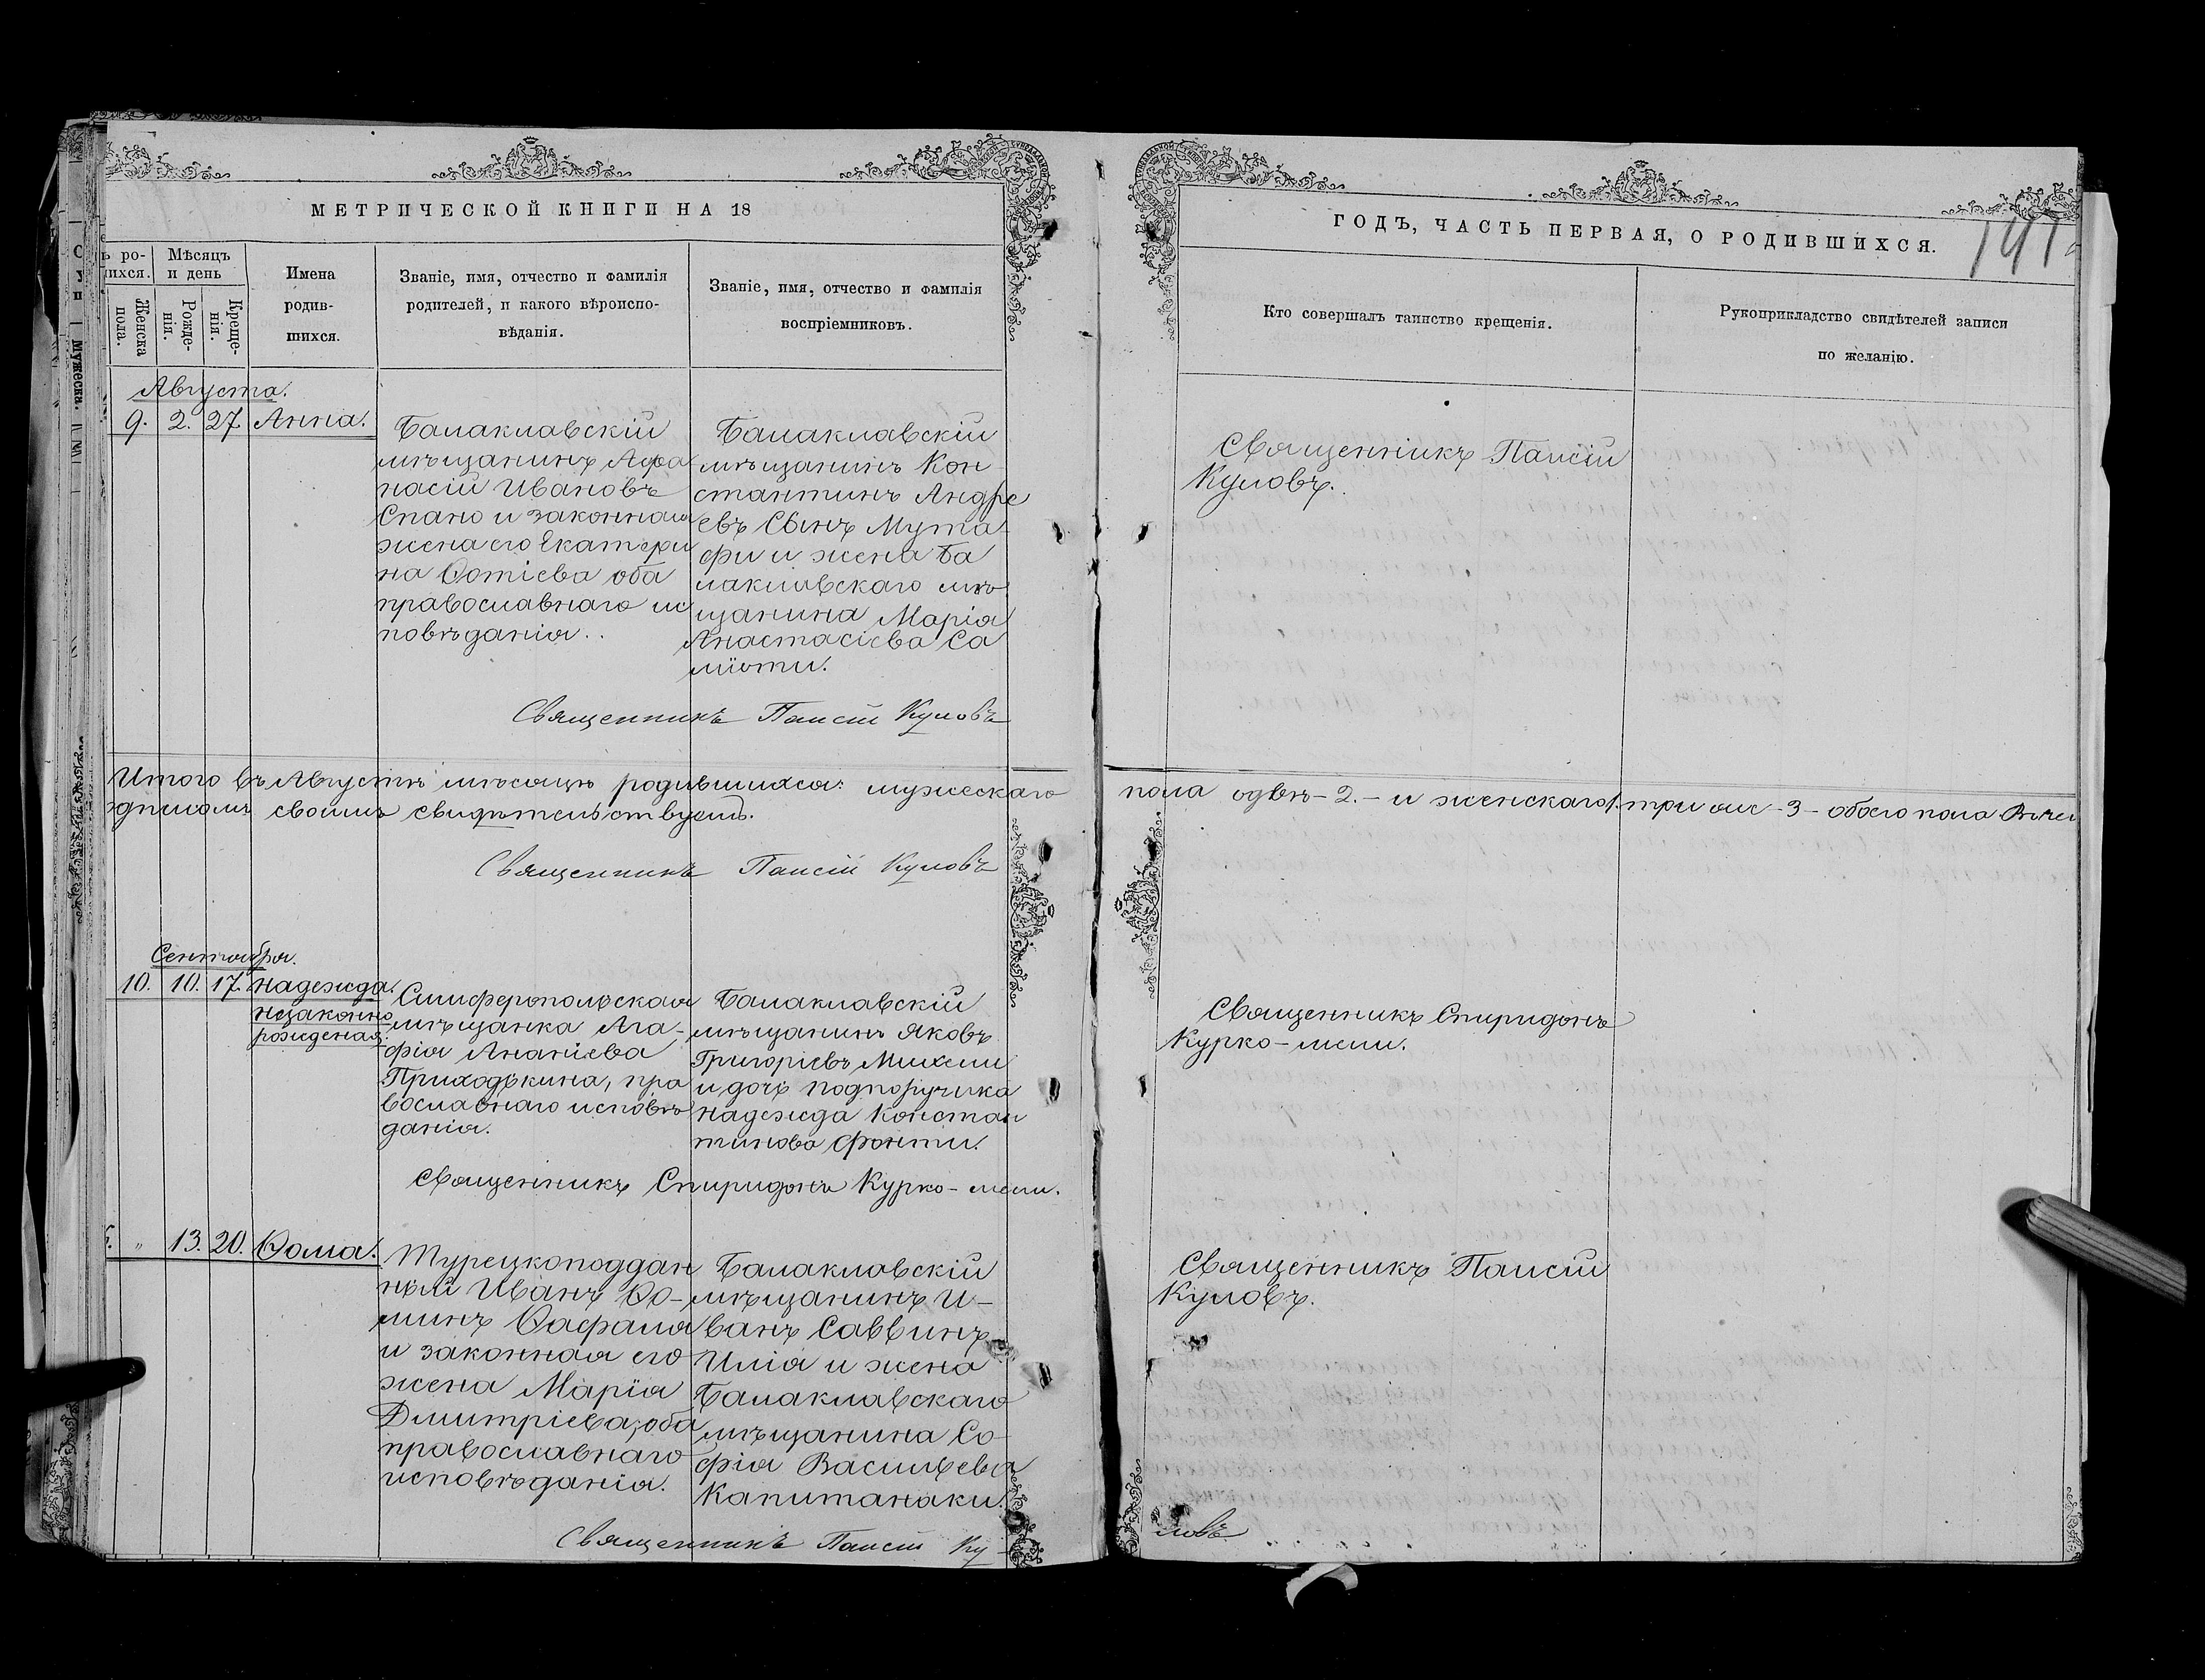 МЕТРИЧЕСКОЙ КНИГИ НА 18
ГОДЪ, ЧАСТЬ ПЕРВАЯ, О РОДИВШИХСЯ.
ъ ро-
шихся.
Женска
пола.
Мѣсяцъ
и день
Рожде-
нія.
Креще-
нія.
Имена
родив-
шихся.
Званіе, имя, отчество и фамилія
родителей, и какого вѣроиспо-
вѣданія.
Званіе, имя, отчество и фамилія
воспріемниковъ.
Кто совершалъ таинство крещенія.
Рукоприкладство свидѣтелей записи
по желанію.
Августа.
9. 2. 27. Анна.
Балаклавскій
мѣщанинъ Афа
насій Ивановъ
Спано и законная
жена его Екатери
на Ѳотіева оба
православнаго ис
повѣданія..
Балаклавскій
мѣщанинъ Кон
стантинъ Андре
евъ сынъ Мута-
фи и жена Ба
лаклавскаго мѣ
щанина Марія
Анастасіева Са
міоти.
Священникъ Паисій
Куловъ.
Священникъ Паисій Куловъ
Итого въ Августѣ мѣсяцѣ родившихся: мужескаго
пола - 2. - и женскаго - 3 - обоего пола
своимъ свидѣтельствуемъ.
Священникъ Паисій Куловъ
Сентября.
10. 10. 17. Надежда.
незаконно
рожденая.
Симферопольская
мѣщанка Ага-
фія Ананіева
Приходькина, пра
вославнаго исповѣ
данія.
Балаклавскій
мѣщанинъ Яковъ
Григорієвъ Михели
и дочь подпоручика
Надежда Констан
тинова Фонти.
Священникъ Спиридонъ
Курко-мели.
Священникъ Спиридонъ Курко-мели.
" 13. 20. Ѳома.
Турецкоподдан
ный Иванъ Ѳо-
минъ
и законная его
жена Марія
Дмитріева, оба
православнаго
исповѣданія.
Балаклавскій
мѣщанинъ И-
ванъ Саввинъ
Илія и жена
Балаклавскаго
мѣщанина Со-
фія Васильева
Капитанаки.
Священникъ Паисій
Куловъ.
Священникъ Паисій Ку-
ловъ